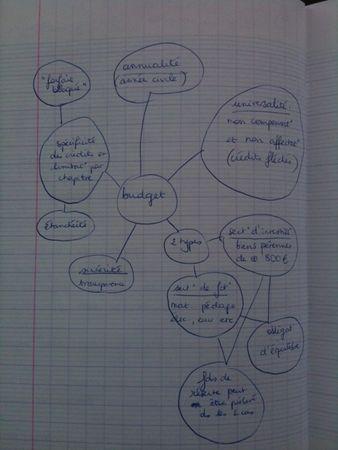 "forfait
bloqué"
annualité
(année civile)
universalité:
non compensat°
et non affectat°
(crédits fléchés)
spécificité
des crédits et
limitat° par
chapitre
budget
étanchéité
2 types
sect° d'investis
biens pérennes
de ⊕ 800 €
sincérité
transparence
sect° de fct°
mat. pédago
elec, eau etc
obligat°
d'équilibre
fds de
réserve peut
être prélevé
ds les 2 cas